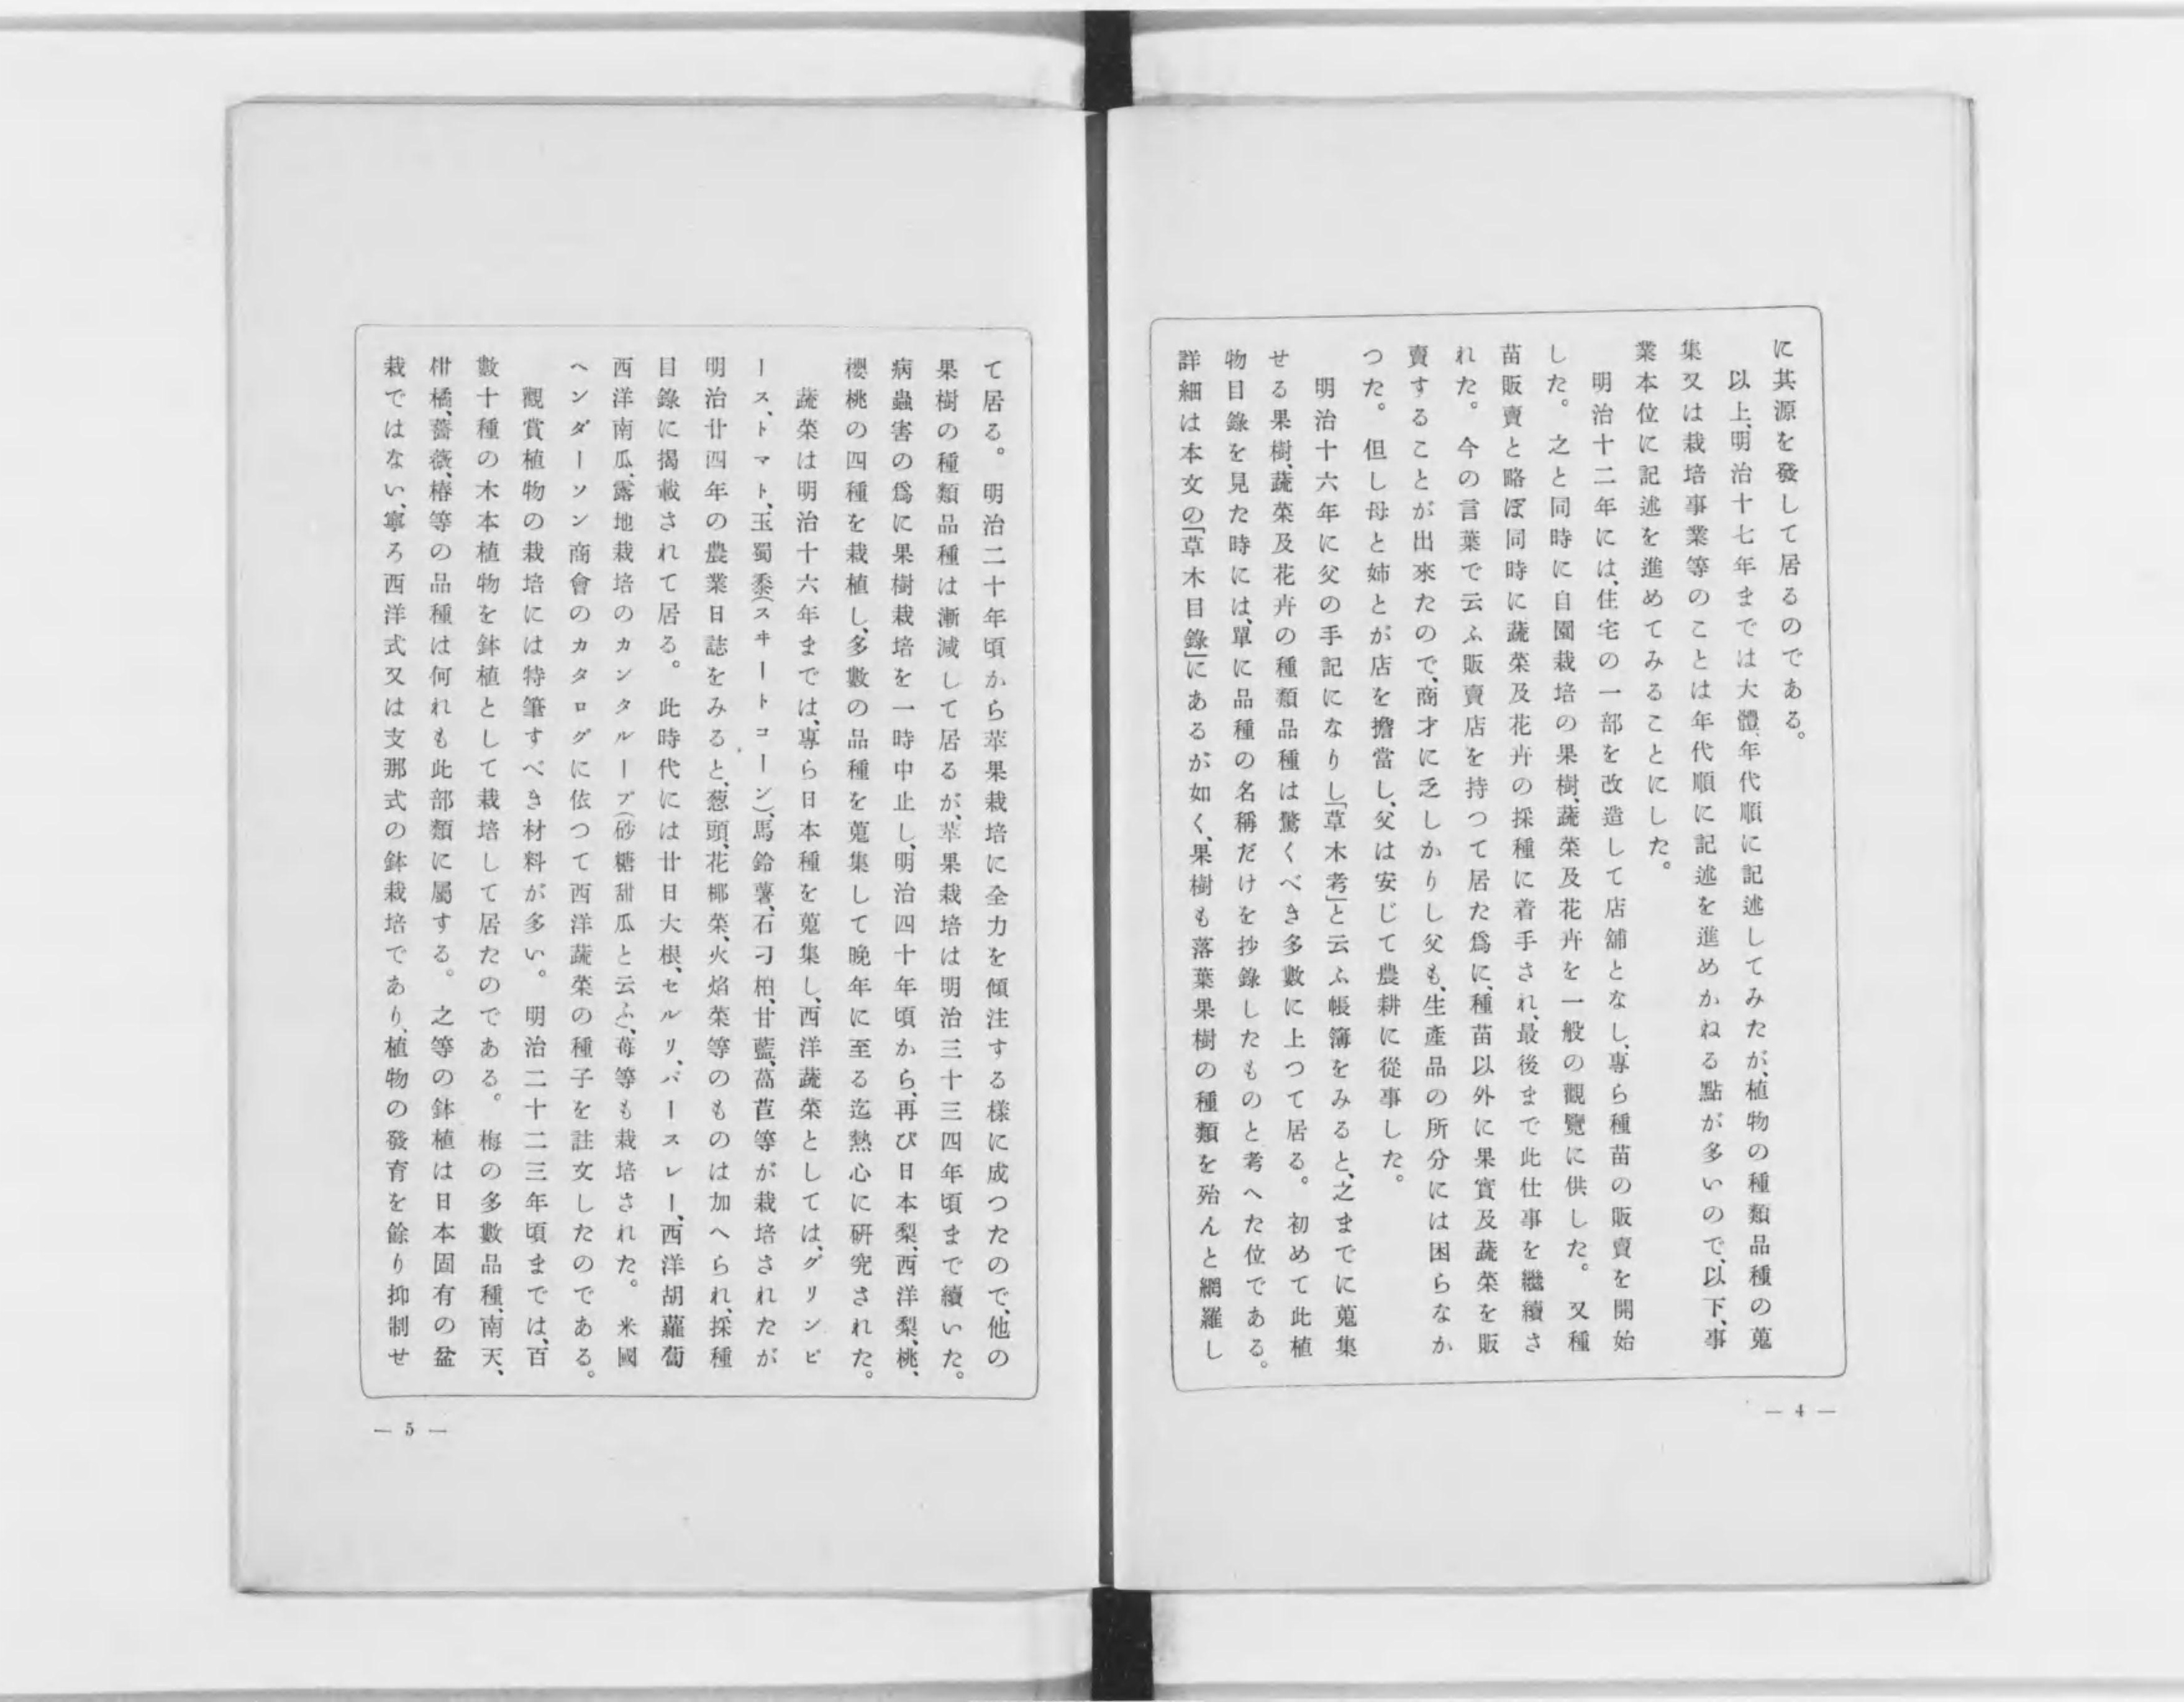 に其源を發して居るのである。
以上、明治十七年までは大體、年代順に記述してみたが、植物の種類品種の蒐
集又は栽培事業等のことは年代順に記述を進めかねる點が多いので、以下、事
業本位に記述を進めてみることにした。
明治十二年には、住宅の一部を改造して店舖となし、專ら種苗の販賣を開始
した。之と同時に自園栽培の果樹、蔬菜及花卉を一般の觀覽に供した。又種
苗販賣と略ぼ同時に蔬菜及花卉の採種に着手され、最後まで此仕事を繼續さ
れた。今の言葉で云ふ販賣店を持つて居た爲に、種苗以外に果實及蔬菜を販
賣することが出來たので、商才に乏しかりし父も、生產品の所分には困らなか
つた。但し母と姉とが店を擔當し、父は安じて農耕に從事した。
明治十六年に父の手記になりし「草木考」と云ふ帳簿をみると、之までに蒐集
せる果樹、蔬菜及花卉の種類品種は驚くべき多數に上つて居る。初めて此植
物目錄を見た時には、單に品種の名稱だけを抄錄したものと考へた位である。
詳細は本文の「草木目錄」にあるが如く、果樹も落葉果樹の種類を殆んと網羅し
— 4 —
て居る。明治二十年頃から苹果栽培に全力を傾注する樣に成つたので、他の
果樹の種類品種は漸減して居るが、苹果栽培は明治三十三四年頃まで續いた。
病蟲害の爲に果樹栽培を一時中止し、明治四十年頃から、再び日本梨、西洋梨、桃、
櫻桃の四種を栽植し、多數の品種を蒐集して晩年に至る迄熱心に硏究された。
蔬菜は明治十六年までは、專ら日本種を蒐集し、西洋蔬菜としては、グリンピ
ース、トマト、玉蜀黍(スヰートコーン)、馬鈴薯、石刁柏、甘藍、萵苣等が栽培されたが
明治廿四年の農業日誌をみると、葱頭、花椰菜、火焰菜等のものは加へられ、採種
目錄に揭載されて居る。此時代には廿日大根、セルリ、パースレー、西洋胡蘿蔔
西洋南瓜、露地栽培のカンタループ(砂糖甜瓜と云ふ)、苺等も栽培された。米國
ヘンダーソン商會のカタログに依つて西洋蔬菜の種子を註文したのである。
觀賞植物の栽培には特筆すべき材料が多い。明治二十二三年頃までは、百
數十種の木本植物を鉢植として栽培して居たのである。梅の多數品種、南天、
柑橘、薔薇、椿等の品種は何れも此部類に屬する。之等の鉢植は日本固有の盆
栽ではない、寧ろ西洋式又は支那式の鉢栽培であり、植物の發育を餘り抑制せ
— 5 —